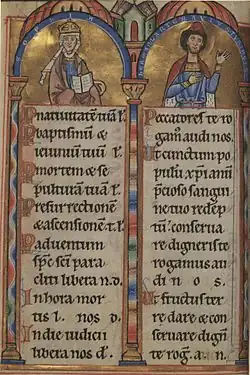 Per nativitatē tuā l'.
P baptismū &
ieiuniū tuū l'.
P mortem & se
pulturā tuā l'.
P resurrectionē
& ascensionē t. l'.
P adventum
sp̄c sc̄i para
cliti libera n. d.
In hora mor
tis l. nos d.
In die iudicii
libera nos d'.
Peccatores te ro
gam⁹ audi nos.
Ut cunctum po
pulū xp̄ianū
p̄tioso sangui
ne tuo redep
tū conserva
re digneris te
rogamus au
di n o s.
Ut fructus ter
re dare & con
servare digñ
te rog. a. n.